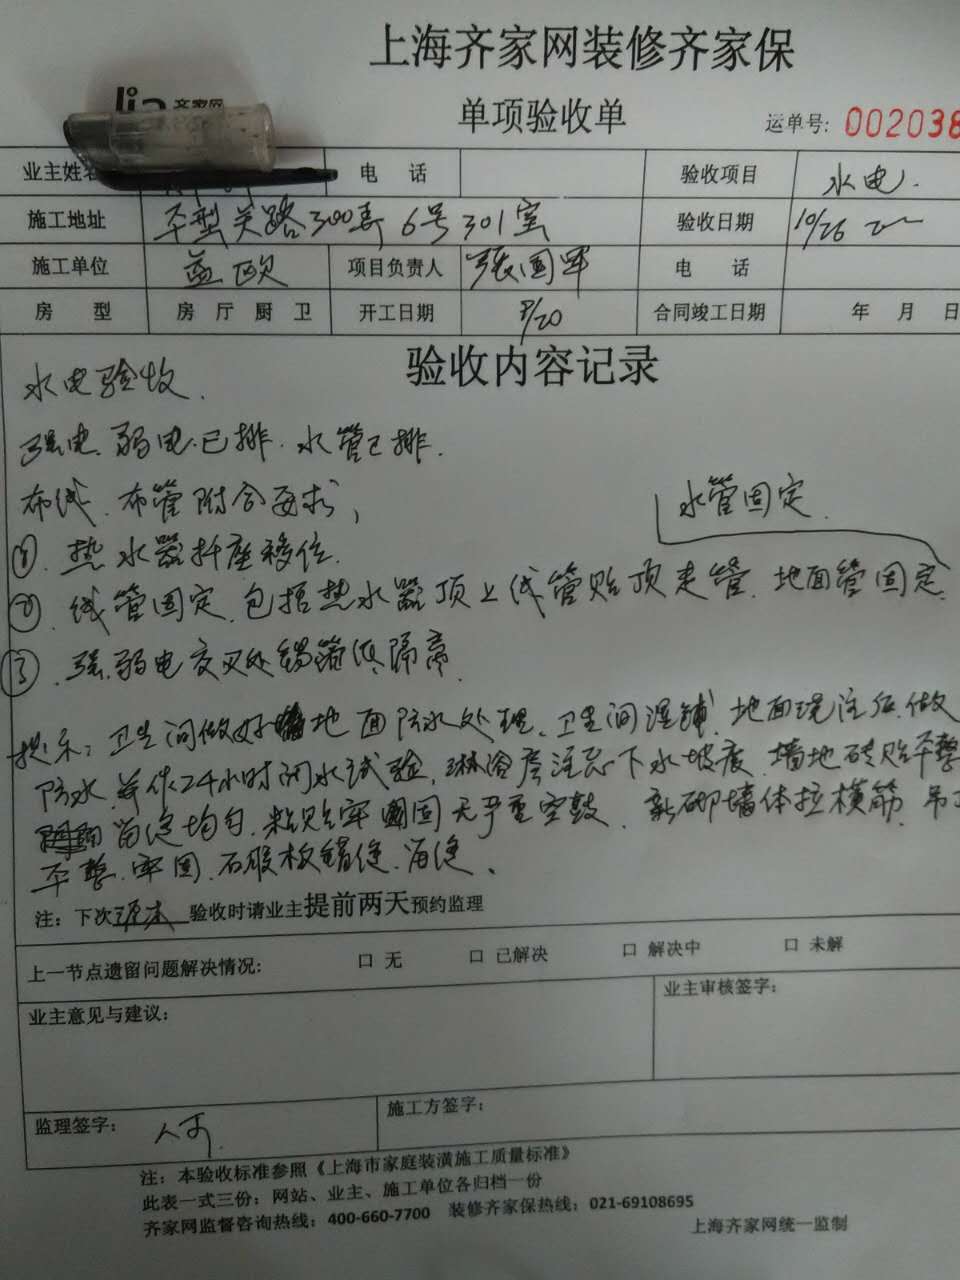 上海齐家网装修齐家保
齐家网
单项验收单
运单号: 002038
业主姓名 电 话 验收项目 水电.
施工地址 平型关路300弄6号301室 验收日期 10/26
施工单位 益欧 项目负责人 張国军 电 话
房 型 房 厅 厨 卫 开工日期 8/20 合同竣工日期 年 月 日
验收内容记录
水电验收.
强电.弱电.已排.水管已排.
布线.布管附合要求,
水管固定.
① .热水器插座移位.
② .线管固定.包括热水器顶上线管贴顶走管.地面管固定.
③ .强.弱电交叉处锡箔纸隔离.
提示: 卫生间做好地面防水处理.卫生间湿铺.地面浇注后.做
防水.并作24小时闭水试验.淋浴房注意下水坡度.墙地砖贴平整
留缝均匀.粘贴牢固无严重空鼓.新砌墙体拉横筋.吊
平整.牢固.石膏板锚缝.
注: 下次泥木验收时请业主提前两天预约监理
上一节点遗留问题解决情况: □ 无 □ 已解决 □ 解决中 □ 未解
业主意见与建议: 业主审核签字:
监理签字: 施工方签字:
注: 本验收标准参照《上海市家庭装潢施工质量标准》
此表一式三份: 网站、业主、施工单位各归档一份
齐家网监督咨询热线: 400-660-7700 装修齐家保热线: 021-69108695
上海齐家网统一监制